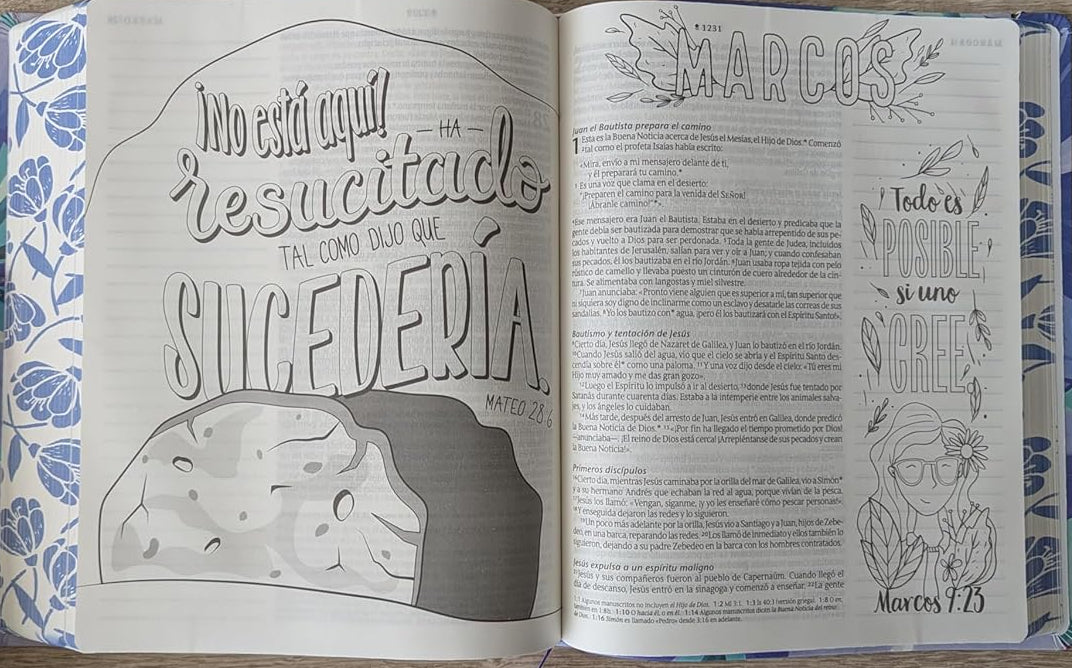 ¡No está aquí!
— HA —
resucitado
TAL COMO DIJO QUE
SUCEDERÍA.
MATEO 28:6
1231
MARCOS
Juan el Bautista prepara el camino
1 Esta es la Buena Noticia acerca de Jesús el Mesías, el Hijo de Dios.* Comenzó
2 tal como el profeta Isaías había escrito:
«Mira, envío a mi mensajero delante de ti,
y él preparará tu camino.*
3 Es una voz que clama en el desierto:
"¡Preparen el camino para la venida del SEÑOR!
¡Ábranle camino!"*».
4 Ese mensajero era Juan el Bautista. Estaba en el desierto y predicaba que la
gente debía ser bautizada para demostrar que se había arrepentido de sus pe-
cados y vuelto a Dios para ser perdonada. 5 Toda la gente de Judea, incluidos
los habitantes de Jerusalén, salían para ver y oír a Juan; y cuando confesaban
sus pecados, él los bautizaba en el río Jordán. 6 Juan usaba ropa tejida con pelo
rústico de camello y llevaba puesto un cinturón de cuero alrededor de la cin-
tura. Se alimentaba con langostas y miel silvestre.
7 Juan anunciaba: «Pronto viene alguien que es superior a mí, tan superior que
ni siquiera soy digno de inclinarme como un esclavo y desatarle las correas de sus
sandalias. 8 Yo los bautizo con* agua, ¡pero él los bautizará con el Espíritu Santo!».
Bautismo y tentación de Jesús
9 Cierto día, Jesús llegó de Nazaret de Galilea, y Juan lo bautizó en el río Jordán.
10 Cuando Jesús salió del agua, vio que el cielo se abría y el Espíritu Santo des-
cendía sobre él* como una paloma. 11 Y una voz dijo desde el cielo: «Tú eres mi
Hijo muy amado y me das gran gozo».
12 Luego el Espíritu lo impulsó a ir al desierto, 13 donde Jesús fue tentado por
Satanás durante cuarenta días. Estaba a la intemperie entre los animales salva-
jes, y los ángeles lo cuidaban.
14 Más tarde, después del arresto de Juan, Jesús entró en Galilea, donde predicó
la Buena Noticia de Dios.* 15 «¡Por fin ha llegado el tiempo prometido por Dios!
—anunciaba—. ¡El reino de Dios está cerca! ¡Arrepiéntanse de sus pecados y crean
la Buena Noticia!».
Primeros discípulos
16 Cierto día, mientras Jesús caminaba por la orilla del mar de Galilea, vio a Simón*
y a su hermano Andrés que echaban la red al agua, porque vivían de la pesca.
17 Jesús los llamó: «Vengan, síganme, ¡y yo les enseñaré cómo pescar personas!».
18 Y enseguida dejaron las redes y lo siguieron.
19 Un poco más adelante por la orilla, Jesús vio a Santiago y a Juan, hijos de Zebe-
deo, en una barca, reparando las redes. 20 Los llamó de inmediato y ellos también lo
siguieron, dejando a su padre Zebedeo en la barca con los hombres contratados.
Jesús expulsa a un espíritu maligno
21 Jesús y sus compañeros fueron al pueblo de Capernaúm. Cuando llegó el
día de descanso, Jesús entró en la sinagoga y comenzó a enseñar. 22 La gente
1:1 Algunos manuscritos no incluyen el Hijo de Dios. 1:2 Ml 3:1. 1:3 Is 40:3 (versión griega). 1:8 O en;
también en 1:8b. 1:10 O hacia él, o en él. 1:14 Algunos manuscritos dicen la Buena Noticia del reino
de Dios. 1:16 Simón es llamado «Pedro» desde 3:16 en adelante.
Todo es
POSIBLE
si uno
CREE
Marcos 9:23